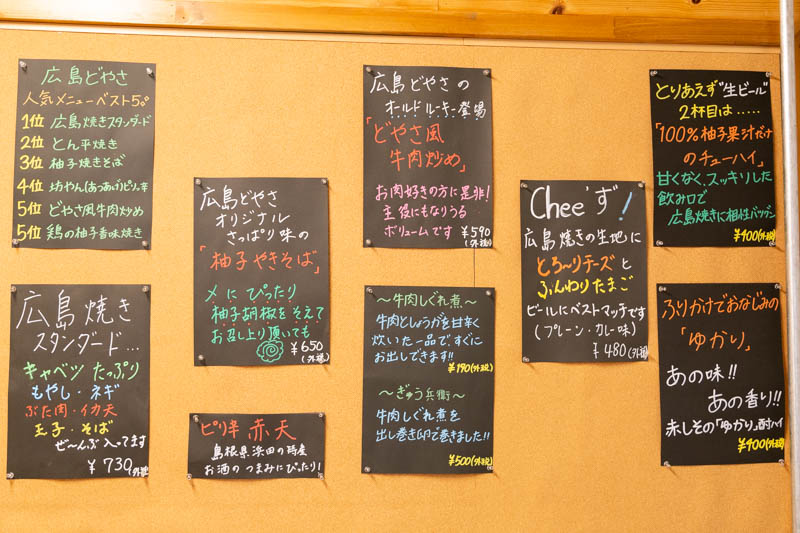 広島どやさ
人気メニューベスト5。
1位 広島焼きスタンダード
2位 とん平焼き
3位 柚子焼きそば
4位 坊やん(あつあげ)ピリ辛
5位 どやさ風牛肉炒め
5位 鶏の柚子香味焼き
広島焼き
スタンダード...
キャベツたっぷり
もやし・ネギ
ぶた肉・イカ天
玉子・そば
ぜ〜んぶ入ってます
¥730(外税)
広島どやさ
オリジナル
さっぱり味の
「柚子やきそば」
〆にぴったり
柚子胡椒をそえて
お召し上り頂いても
¥650
(外税)
ピリ辛 赤天
島根県浜田の特産
お酒のつまみにぴったり!
広島どやさの
オールドルーキー登場
「どやさ風
牛肉炒め」
お肉好きの方に是非!
主役にもなりうる
ボリュームです
¥590
(外税)
〜牛肉しぐれ煮〜
牛肉としょうがを甘辛く
炊いた一品ですぐに
お出しできます!!
¥190(外税)
〜ぎゅう兵衛〜
牛肉しぐれ煮を
出し巻き卵で巻きました!!
¥500(外税)
Chee'ず!
広島焼きの生地に
とろ〜りチーズと
ふんわりたまご
ビールにベストマッチです
(プレーン・カレー味)
¥480(外税)
とりあえず"生ビール"
2杯目は.....
「100%柚子果汁だけ
のチューハイ」
甘くなく、スッキリした
飲み口で
広島焼きに相性バツグン
¥400(外税)
ふりかけでおなじみの
「ゆかり」
あの味!!
あの香り!!
赤しその「ゆかり」酎ハイ
¥400(外税)